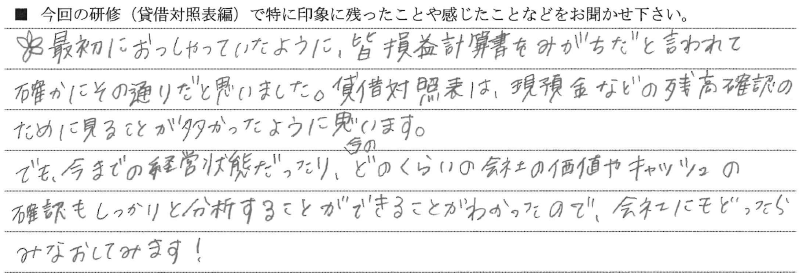 ■ 今回の研修（貸借対照表編）で特に印象に残ったことや感じたことなどをお聞かせ下さい。
最初におっしゃっていたように、皆損益計算書をみがちだと言われて
確かにその通りだと思いました。貸借対照表は、現預金などの残高確認の
ために見ることが多かったように思います。
でも、今までの経営状態だったり、今のどのくらいの会社の価値やキャッシュの
確認もしっかりと分析することができることがわかったので、会社にもどったら
みなおしてみます！